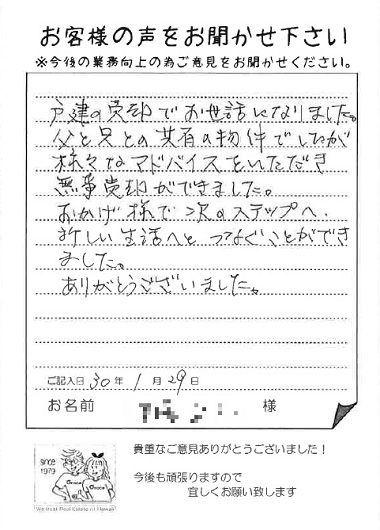 お客様の声をお聞かせ下さい
※今後の業務向上の為ご意見をお聞かせください。
戸建の売却でお世話になりました。
父と兄との共有の物件でしたが
様々なアドバイスをいただき
無事売却ができました。
おかげ様で次のステップへ、
新しい生活へと つなぐことができ
ました。
ありがとうございました。
ご記入日 30 年 1 月 29 日
お名前 様
貴重なご意見ありがとうございました！
今後も頑張りますので
宜しくお願い致します
since
1979
We beat Real Estate of Hawaii